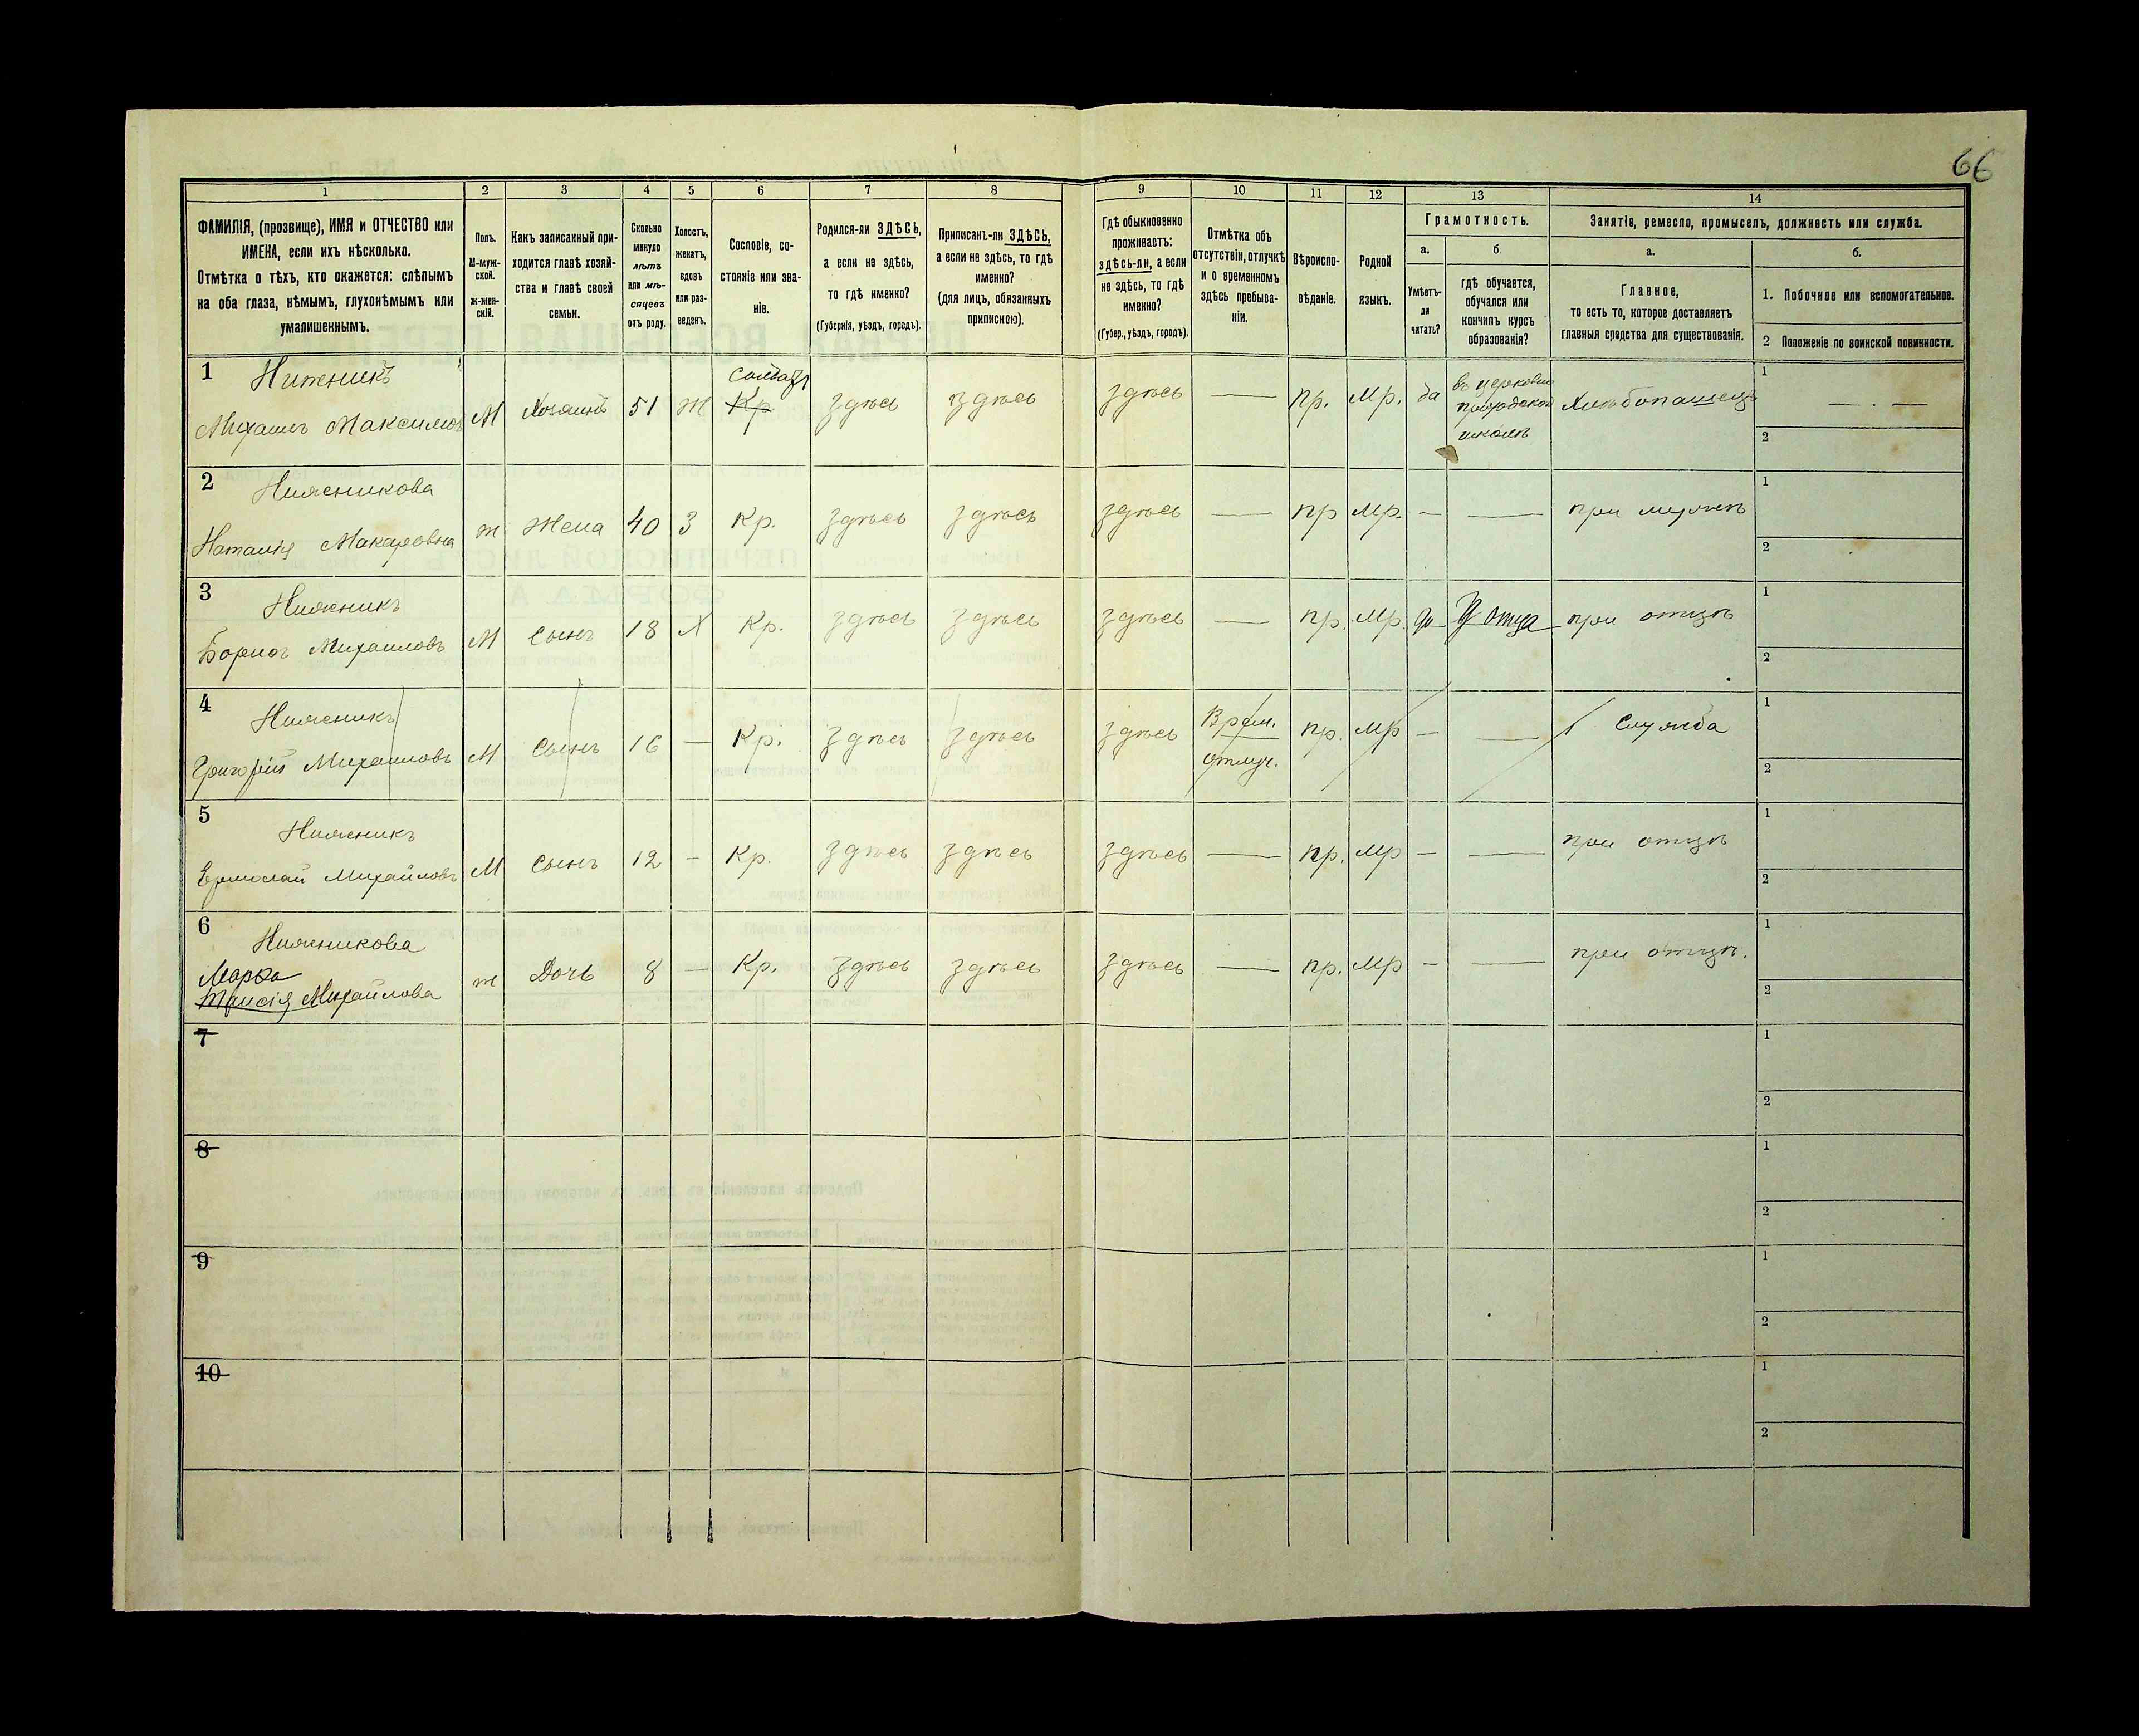 66
1 2 3 4 5 6 7 8 9 10 11 12 13 14
ФАМИЛІЯ, (прозвище), ИМЯ и ОТЧЕСТВО или
ИМЕНА, если ихъ нѣсколько.
Отмѣтка о тѣхъ, кто окажется: слѣпымъ
на оба глаза, нѣмымъ, глухонѣмымъ или
умалишеннымъ.
Полъ.
М-муж-
ской.
ж-жен-
скій.
Какъ записанный при-
ходится главѣ хозяй-
ства и главѣ своей
семьи.
Сколько
минуло
лѣтъ
или мѣ-
сяцевъ
отъ роду.
Холостъ,
женатъ,
вдовъ
или раз-
веденъ.
Сословіе, со-
стояніе или зва-
ніе.
Родился-ли ЗДѢСЬ,
а если не здѣсь,
то гдѣ именно?
(Губернія, уѣздъ, городъ).
Приписанъ-ли ЗДѢСЬ,
а если не здѣсь, то гдѣ
именно?
(для лицъ, обязанныхъ
припискою).
Гдѣ обыкновенно
проживаетъ:
здѣсь-ли, а если
не здѣсь, то гдѣ
именно?
(Губер., уѣздъ, городъ).
Отмѣтка объ
отсутствіи, отлучкѣ
и о временномъ
здѣсь пребыва-
ніи.
Вѣроиспо-
вѣданіе.
Родной
языкъ.
Грамотность.
а.
Умѣетъ-
ли
читать?
б.
гдѣ обучается,
обучался или
кончилъ курсъ
образованія?
Занятія, ремесло, промыселъ, должность или служба.
а.
Главное,
то есть то, которое доставляетъ
главныя средства для существованія.
б.
1. Побочное или вспомогательное.
2 Положеніе по воинской повинности.
1 Нижникъ
Михаилъ Максимов М Хозяинъ 51 Ж солдатъ Кр здѣсь здѣсь здѣсь — пр. Мр. да
школѣ
Хлѣбопашецъ 1 — . —
2
2 Нижникова
Наталія Макаровна ж Жена 40 З Кр. здѣсь здѣсь здѣсь — пр Мр. — — при мужѣ 1
2
3 Нижникъ
Борисъ Михаиловъ М Сынъ 18 Х Кр. здѣсь здѣсь здѣсь — пр. Мр. да У отца при отцѣ 1
2
4 Нижникъ
Григорій Михаиловъ М Сынъ 16 — Кр. здѣсь здѣсь здѣсь Врем. отлуч. пр. Мр — — Служба 1
2
5 Нижникъ
Ермолай Михайловъ М Сынъ 12 — Кр. здѣсь здѣсь здѣсь — пр. Мр — — при отцѣ 1
2
6 Нижникова
Марѳа
Таисія Михайлова ж Дочь 8 — Кр. здѣсь здѣсь здѣсь — пр. Мр — — при отцѣ. 1
2
7 1
2
8 1
2
9 1
2
10 1
2